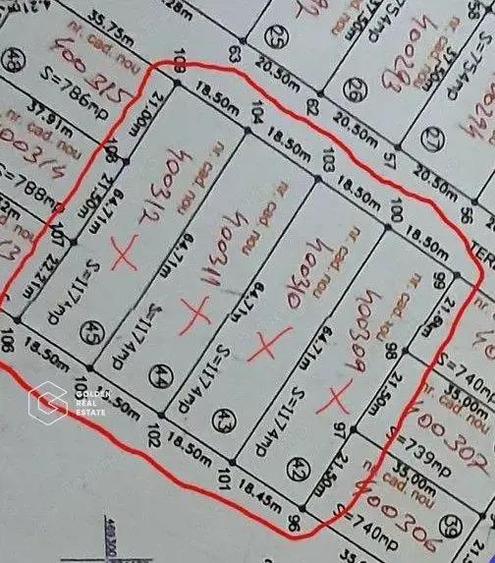 35.75m
.28m
63
25
20.50m
62
26
20.50m
57
27
20.50m
56
37.50m
S=754mp
400293
37.50m
S=754mp
48
nr. cad nou
400315
S=786mp
37.91m
nr. cad. nou
S=788mp
109
18.50m
104
18.50m
103
18.50m
100
18.50m
99
TER
21.00m
108
21.50m
107
22.21m
106
nr. cad nou
400312
64.71m
S=1174mp
45
nr. cad nou
400311
64.71m
S=1174mp
44
nr. cad nou
400310
64.71m
S=1174mp
43
nr. cad nou
400309
64.71m
S=1174mp
42
98
21.50m
97
21.50m
96
18.50m
102
18.50m
101
18.45m
S=740mp
35.00m
nr. cad. nou
400307
S=739mp
35.00m
nr. cad. nou
400306
39
S=740mp
GOLDEN
REAL
ESTATE